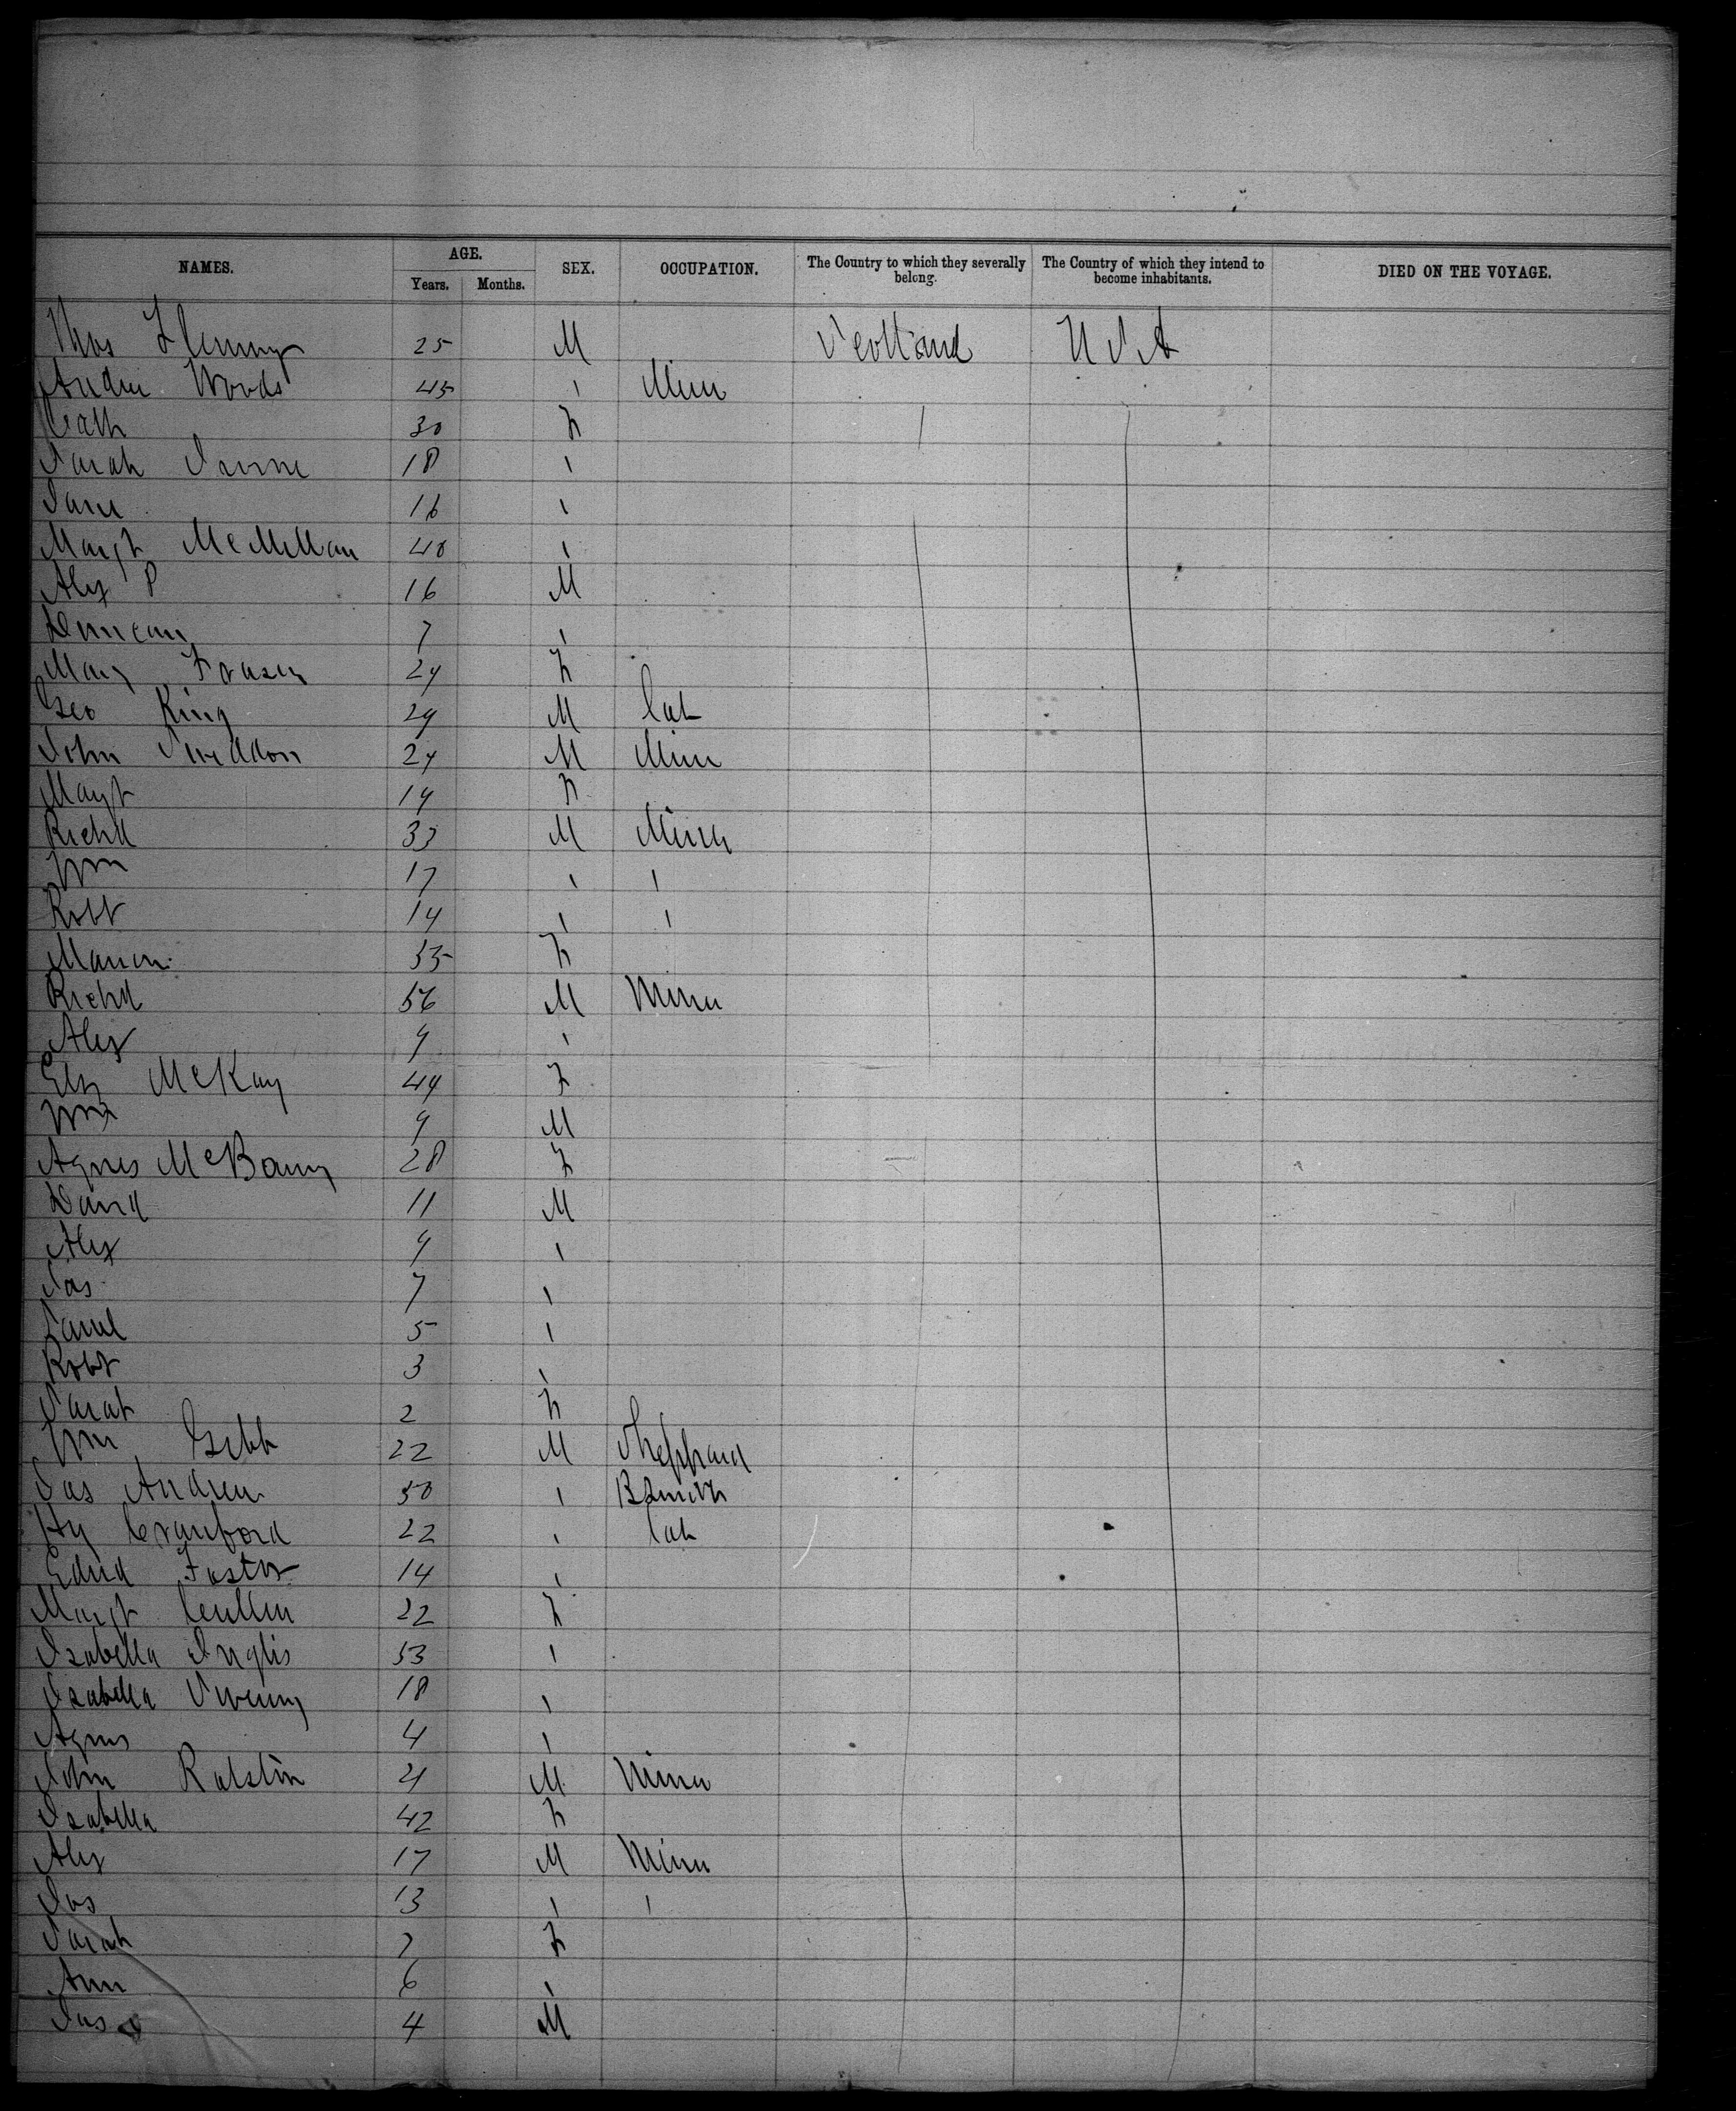 NAMES. AGE. Years. Months. SEX. OCCUPATION. The Country to which they severally belong. The Country of which they intend to become inhabitants. DIED ON THE VOYAGE.
Thos Flemming 25 M Scotland U S A
Andw Woods 45 " Miner
Cath 30 F
Sarah Irvine 18 "
Jane 16 "
Margt McMillan 40 "
Alex P 16 M
Duncan 7 "
Mary Fraser 24 F
Geo King 29 M Lab
John Sneddon 24 M Miner
Margt 14 F
Richd 33 M Miner
Wm 17 " "
Robt 14 " "
Marion 35 F
Richd 56 M Miner
Alex 9 "
Eliz McKay 44 F
Wm 9 M
Agnes 28 F
David 11 M
Alex 9 "
Jas 7 "
Saml 5 "
Robt 3 "
Sarah 2 F
Wm Gibb 22 M Shepphard
Jas Andrew 50 " BSmith
Hy Crawford 22 " Lab
Edwd Foster 14 "
Margt Cullen 22 F
Isabella Inglis 53 "
Isabella 18 "
Agnes 4 "
John Ralston M Miner
Isabella 42 F
Alex 17 M Miner
Jas 13 " "
Sarah 7 F
Ann 6 "
Jas 4 M